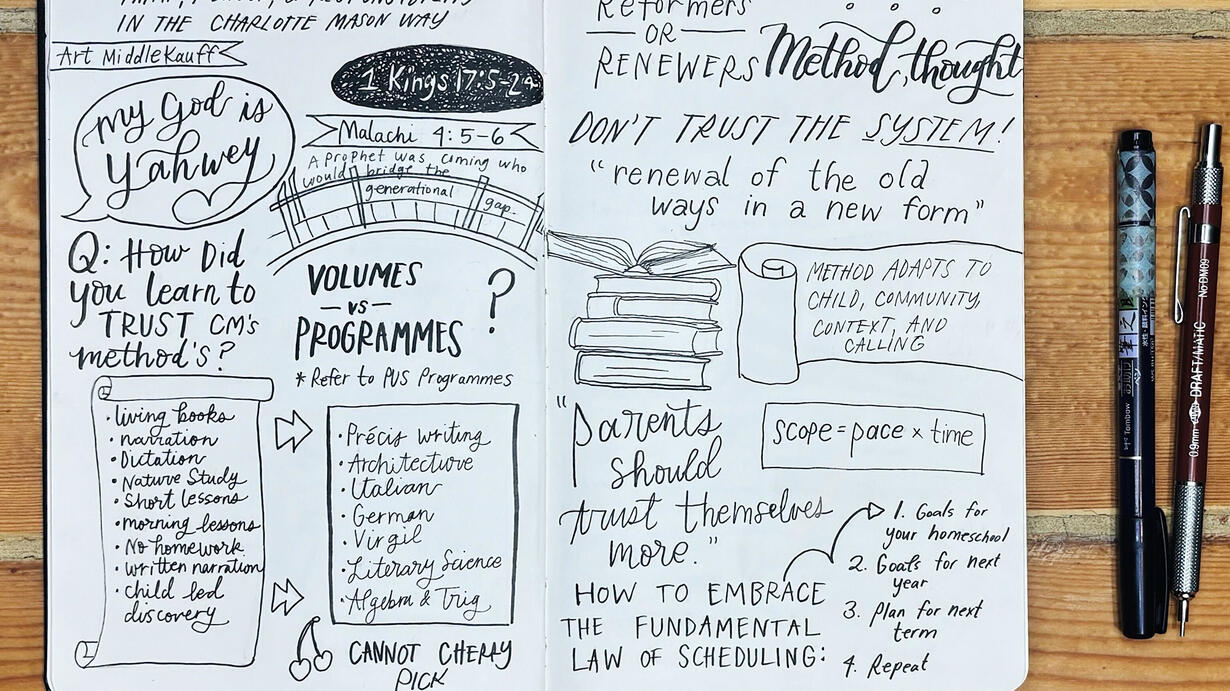 IN THE CHARLOTTE MASON WAY
Art MiddleKauff
1 Kings 17:5-24
my God is
Yahwey
Malachi 4:5-6
A prophet was coming who
would bridge the
generational
gap.
Q: How Did
you learn to
TRUST CM's
method's?
VOLUMES
-vs-
PROGRAMMES
?
*Refer to PUS Programmes
·living books
·narration
·Dictation
·Nature Study
·Short lessons
·morning lessons
·No homework
·written narration
·child led
discovery
·Précis writing
·Architecture
·Italian
·German
·Virgil
·Literary Science
·Algebra & Trig
CANNOT CHERRY
PICK
Reformers
—OR—
RENEWERS
Method, thought
DON'T TRUST THE SYSTEM!
"renewal of the old
ways in a new form"
METHOD ADAPTS TO
CHILD, COMMUNITY,
CONTEXT, AND
CALLING
"Parents
should
trust themselves
more."
scope=pace × time
HOW TO EMBRACE
THE FUNDAMENTAL
LAW OF SCHEDULING:
1. Goals for
your homeschool
2. Goals for next
year
3. Plan for next
term
4. Repeat
Tombow
0.9mm DRAFT/MATIC NoDM09